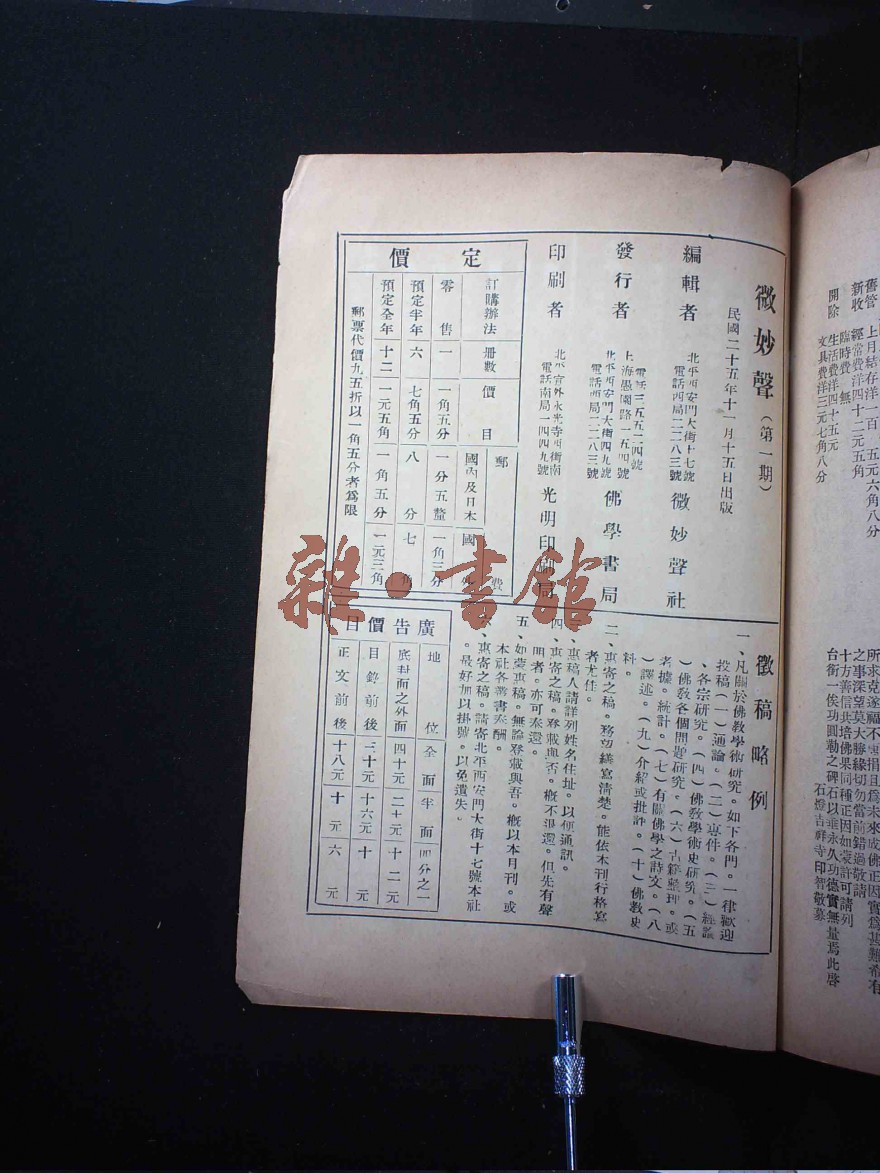 舊管　上月結存洋一百　五元六角八分
新收　經常費洋四十二元五角
臨時費　無
開除　生活費洋四十五元
文具費洋三元七角八分
之事深望莫大勝緣切勿當前錯過敬請
十方善信共培佛果同種正因如蒙許可請列
台銜一俟功圓勒之碑石以垂永久功德實無量焉此啓
石燈吉祥寺印智敬募
微妙聲（第一期）
民國二十五年十一月十五日出版
編輯者
北平西安門大街十七號
電話西局二二八三號
微妙聲社
發行者
上海愚園路一五四號
北平西安門大街十七號
電話西局二二八三號
佛學書局
印刷者
北平宣外永光寺西街南
電話南局一四四九號
光明印刷局
定價
訂購辦法　册數　價目　郵費
國內及日本　國外
零售　一　一角五分　一分五釐　一角三分
預定半年　六　七角五分　八分　七角
預定全年　十二　一元五角　一角五分　一元三角
郵票代價九五折以一角五分者爲限
徵稿略例
一、凡關於佛敎學術研究。如下各門。一律歡迎
投稿（一）通論。（二）專件。（三）經論
、各宗研究。（四）佛敎學術史研究。（五
）佛敎各個問題研究。（六）古籍整理。或
考據。統計。（七）有關佛學之詩文。（八
）譯述。（九）介紹或批評。（十）佛敎史
料。
二、惠寄之稿。務望繕寫淸楚。能依本刊行格寫
者尤佳。
惠稿人請詳列姓名住址。以便通訊。
四、惠寄之稿。登載與否。槪不退還。但先有聲
明者。亦可奉還。
五、如蒙惠稿。無論登載與否。槪以本月刊。或
本社各善書奉酬。
惠寄之稿。請寄北平西安門大街十七號本社
。最好加以掛號。以免遺失。
廣吿價目
地位　全面　半面　四分之一
底封面之外面　四十元　二十元　十二元
目錄前後　三十元　十六元　十元
正文前後　十八元　十元　六元
雜·書館